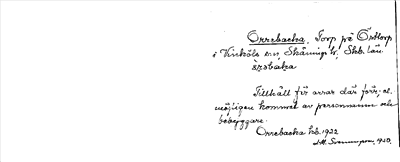 Orrebacka, Torp på Östtorp
i Vinköls sn, Skånings hd, Skb. län
ɔrəbáka
Tillhåll för orrar där förr, el.
möjligen kommet av personnamn
bebyggare.
Orrebacka hb. 1922
J.M. Svennungsson, 1930.